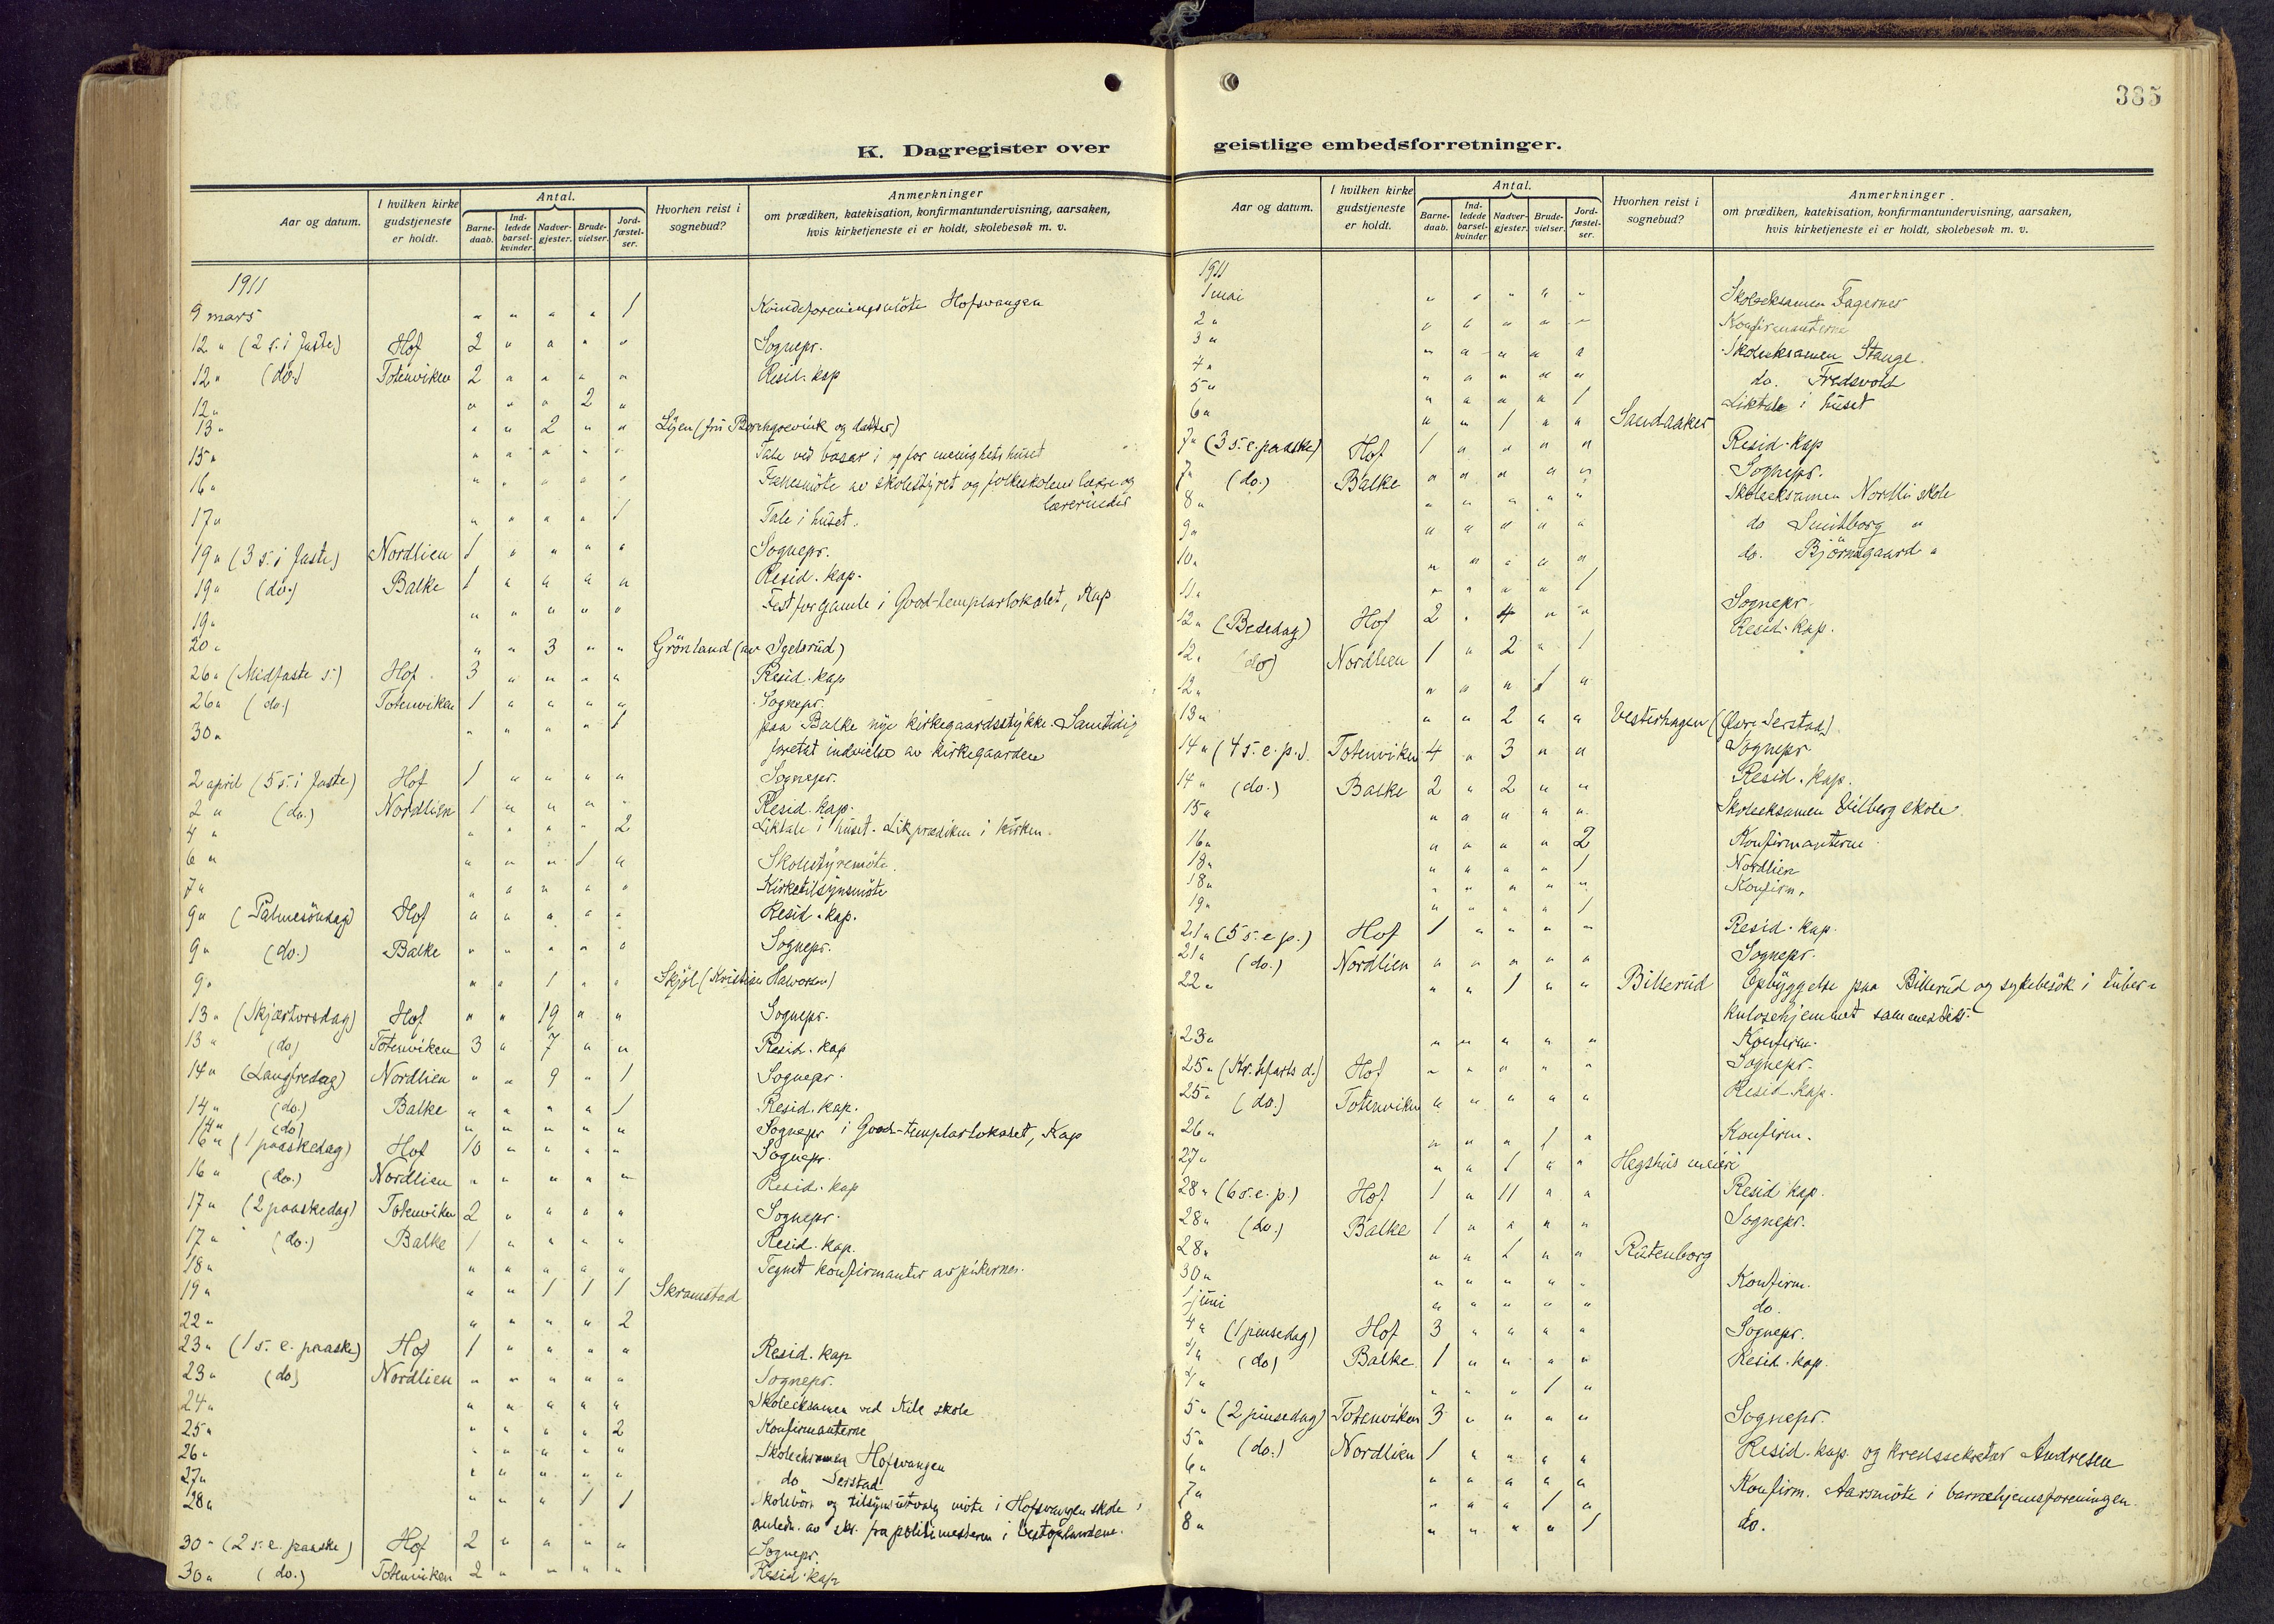 385
K. Dagregister over geistlige embedsforretninger.
Aar og datum. | I hvilken kirke gudstjeneste er holdt. | Antal. Barnedaab. | Indledede barselkvinder | Nadvergjester. | Brudevielser. | Jordfæstelser. | Hvorhen reist i sognebud? | Anmerkninger om prædiken, katekisation, konfirmantundervisning, aarsaken, hvis kirketjeneste ei er holdt, skolebesøk m. v.
1911
9 mars " " " " 1 Kvindeforeningsmöte Hofsvangen
12 " (2 s. i faste) Hof 2 " " " " Sognepr.
12 " (do.) Totenviken 2 " " " " Resid. kap
12 " " " " 2 "
13 " " " 2 " " Lijen (fru Borchgrevink og datter)
15 " " " " " " Tale ved basar i og for menighetshuset
16 " " " " " " Fællesmöte av skolestyret og folkeskolens lærere og
lærerinder
17 " " " " " 1 Tale i huset.
19 " (3 s. i faste) Nordlien 1 " " " " Sognepr.
19 " (do.) Balke 1 " " " " Resid. kap.
19 " " " " " " Fest for gamle i Good-templarlokalet, Kap
20 " " " 3 " " Grönland (av Igelsrud)
26 " (Midfaste s.) Hof 3 " " " " Resid. kap
26 " (do.) Totenviken 1 " " " " Sognepr.
30 " " " " " 1 paa Balke nye kirkegaardsstykke. Samtidig
foretat indvielse av kirkegaarden
2 april (5 s. i faste) Hof 1 " " " " Sognepr.
2 " (do.) Nordlien 1 " " " " Resid. kap.
4 " " " " " 2 Liktale i huset. Likprædiken i kirken.
6 " " " " 1 " Skolestyremöte.
7 " " " " " " Kirketilsynsmöte
9 " (Palmesöndag) Hof " " " " " Resid. kap.
9 " (do.) Balke " " " " " Sognepr.
9 " " " 1 " " Skjöl (Kristian Halvorsen)
13 " (Skjærtorsdag) Hof " " 19 " " Sognepr.
13 " (do) Totenviken 3 " 7 " " Resid. kap
14 " (Langfredag) Nordlien " " 9 " 1 Sognepr.
14 " (do.) Balke " " " " 1 Resid. kap.
14 " (do) " " " " " Sognepr i Good-templarlokalet, Kap
16 " (1 paaskedag) Hof 10 " " " " Sognepr.
16 " (do.) Nordlien " " " " " Resid. kap
17 " (2 paaskedag) Totenviken 2 " " " " Sognepr.
17 " (do.) Balke 1 " " " " Resid. kap.
18 " " " " " " Tegnet konfirmanter av pikerne.
19 " " " 1 1 1 Skramstad
22 " " " " " 2
23 " (1 s. e. paaske) Hof 1 " " " " Resid. kap
23 " (do) Nordlien " " " " " Sognepr.
24 " " " " " " Skoleeksamen ved Kile skole
25 " " " " " 2 Konfirmanterne
26 " " " " " " Skoleeksamen Hofsvangen
27 " " " " " " do Seistad
28 " " " " 1 1 Skolebörn og tilsynsutvalg möte i Hofsvangen skole i
anledn. av skr. fra politimesteren i Vestoplandene.
30 " (2 s. e. paaske) Hof 2 " " " " Sognepr.
30 " (do.) Totenviken 2 " " " " Resid. kap
1911
1 mai " " " " " Skoleeksamen Fagernes
2 " " " " " " Konfirmanterne
3 " " " " " " Skoleeksamen Stange.
4 " " " " " " do. Fredsvold
5 " " " " " 1 Liktale i huset
6 " " " 1 " " Sandaaker
7 " (3 s. e. paaske) Hof 1 " " " " Resid. kap
7 " (do.) Balke " " " " " Sognepr.
8 " " " " " " Skoleeksamen Nordli skole
9 " " " " " " do Smithborg "
10 " " " " " " do. Björnsgaard "
11 " " " " " 1
12 " (Bededag) Hof 2 " 4 " " Sognepr.
12 " (do) Nordlien 1 " 2 " 1 Resid. kap.
12 " " " " 1 "
13 " " " 2 " " Vesterhagen (Övre Seistad)
14 " (4 s. e. p.) Totenviken 4 " 3 " " Sognepr
14 " (do.) Balke 2 " 2 " " Resid. kap.
15 " " " " " " Skoleeksamen Eilberg skole.
16 " " " " " 2 Konfirmanterne
18 " " " " " 1 Nordlien
18 " " " " " " Konfirm.
19 " " " " " 1
21 " (5 s. e. p.) Hof 1 " " " " Resid. kap.
21 " (do.) Nordlien " " " " " Sognepr.
22 " " " 1 " " Billerud Opbyggelse paa Billerud og sykebesök i tuber-
kulosehjemmet sammesteds.
23 " " " " " " Konfirm.
25 " (Kr. hfarts d.) Hof " " " " " Sognepr.
25 " (do.) Totenviken " " " " " Resid. kap.
26 " " " " 1 " Konfirm.
27 " " " 1 " " Hegshus meieri
28 " (6 s. e. p.) Hof 1 " 11 " " Resid kap.
28 " (do.) Balke 1 " " " " Sognepr.
28 " " " 1 " " Rutenborg
30 " " " " " " Konfirm.
1 juni " " " " " do.
4 " (1 pinsedag) Hof 3 " " " " Sognepr.
4 " (do) Balke 1 " " " " Resid. kap.
4 " " " " 1 "
5 " (2 pinsedag) Totenviken 3 " " " " Sognepr.
5 " (do.) Nordlien 1 " " " " Resid. kap. og kredssekretær Andresen
6 " " " " " " Konfirm. Aarsmöte i barnehjemsforeningen.
7 " " " " 1 " do.
8 " " " " " 1